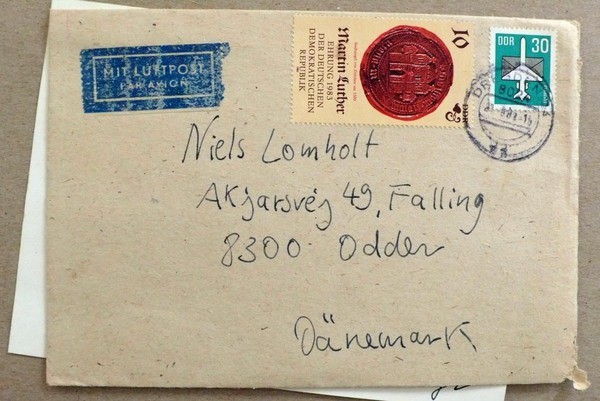 MIT LUFTPOST
PAR AVION
Martin Luther
EHRUNG 1983
DER DEUTSCHEN
DEMOKRATISCHEN
REPUBLIK
10
DDR
DDR 30
Niels Lomholt
Akjarsvej 49, Falling
8300 Odder
Dänemark